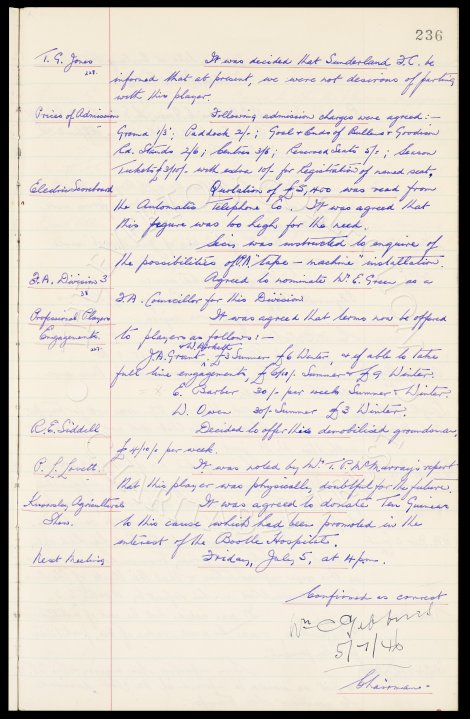 236
T. G. Jones It was decided that Sunderland F.C. be
informed that at present, we were not desirous of parting
with this player.
Prices of Admission Following admission charges were agreed:-
Ground 1/3; Paddock 2/-; Goal & Ends of Bullens & Goodison
Rd. Stands 2/6; Centres 3/6; Reserved Seats 5/-; Season
Tickets £3/10/- with extra 10/- for Registration of named seats.
Electric Scoreboard Quotation of £5,400 was read from
the Automatic Telephone Co. It was agreed that
this figure was too high for the need.
Secy was instructed to enquire of
the possibilities of "tape - machine" installation
F.A. Division 3 Agreed to nominate Mr. E. Green as a
38 F.A. Councillor for this Division
Professional Players It was agreed that terms now be offered
Engagements. to players as follows:-
J.A. Grant, £5 Summer £6 Winter, & if able to take
full time engagements, £6/10/- Summer & £9 Winter.
E. Barber 30/- per week Summer & Winter.
W. Owen 30/- Summer £3 Winter.
R. E. Siddell Decided to offer this demobilised groundsman,
£4/10/- per week.
P. L. Lovett. It was noted by Mr. T. P. McMurray's report
that this player was physically doubtful for the future.
Agricultural It was agreed to donate Ten Guineas
Show. to this cause which had been promoted in the
interest of the Bootle Hospitals.
Next Meeting Friday, July 5, at 4 p.m.
Confirmed as correct
Wm C Gibbins
5/7/46
Chairman.